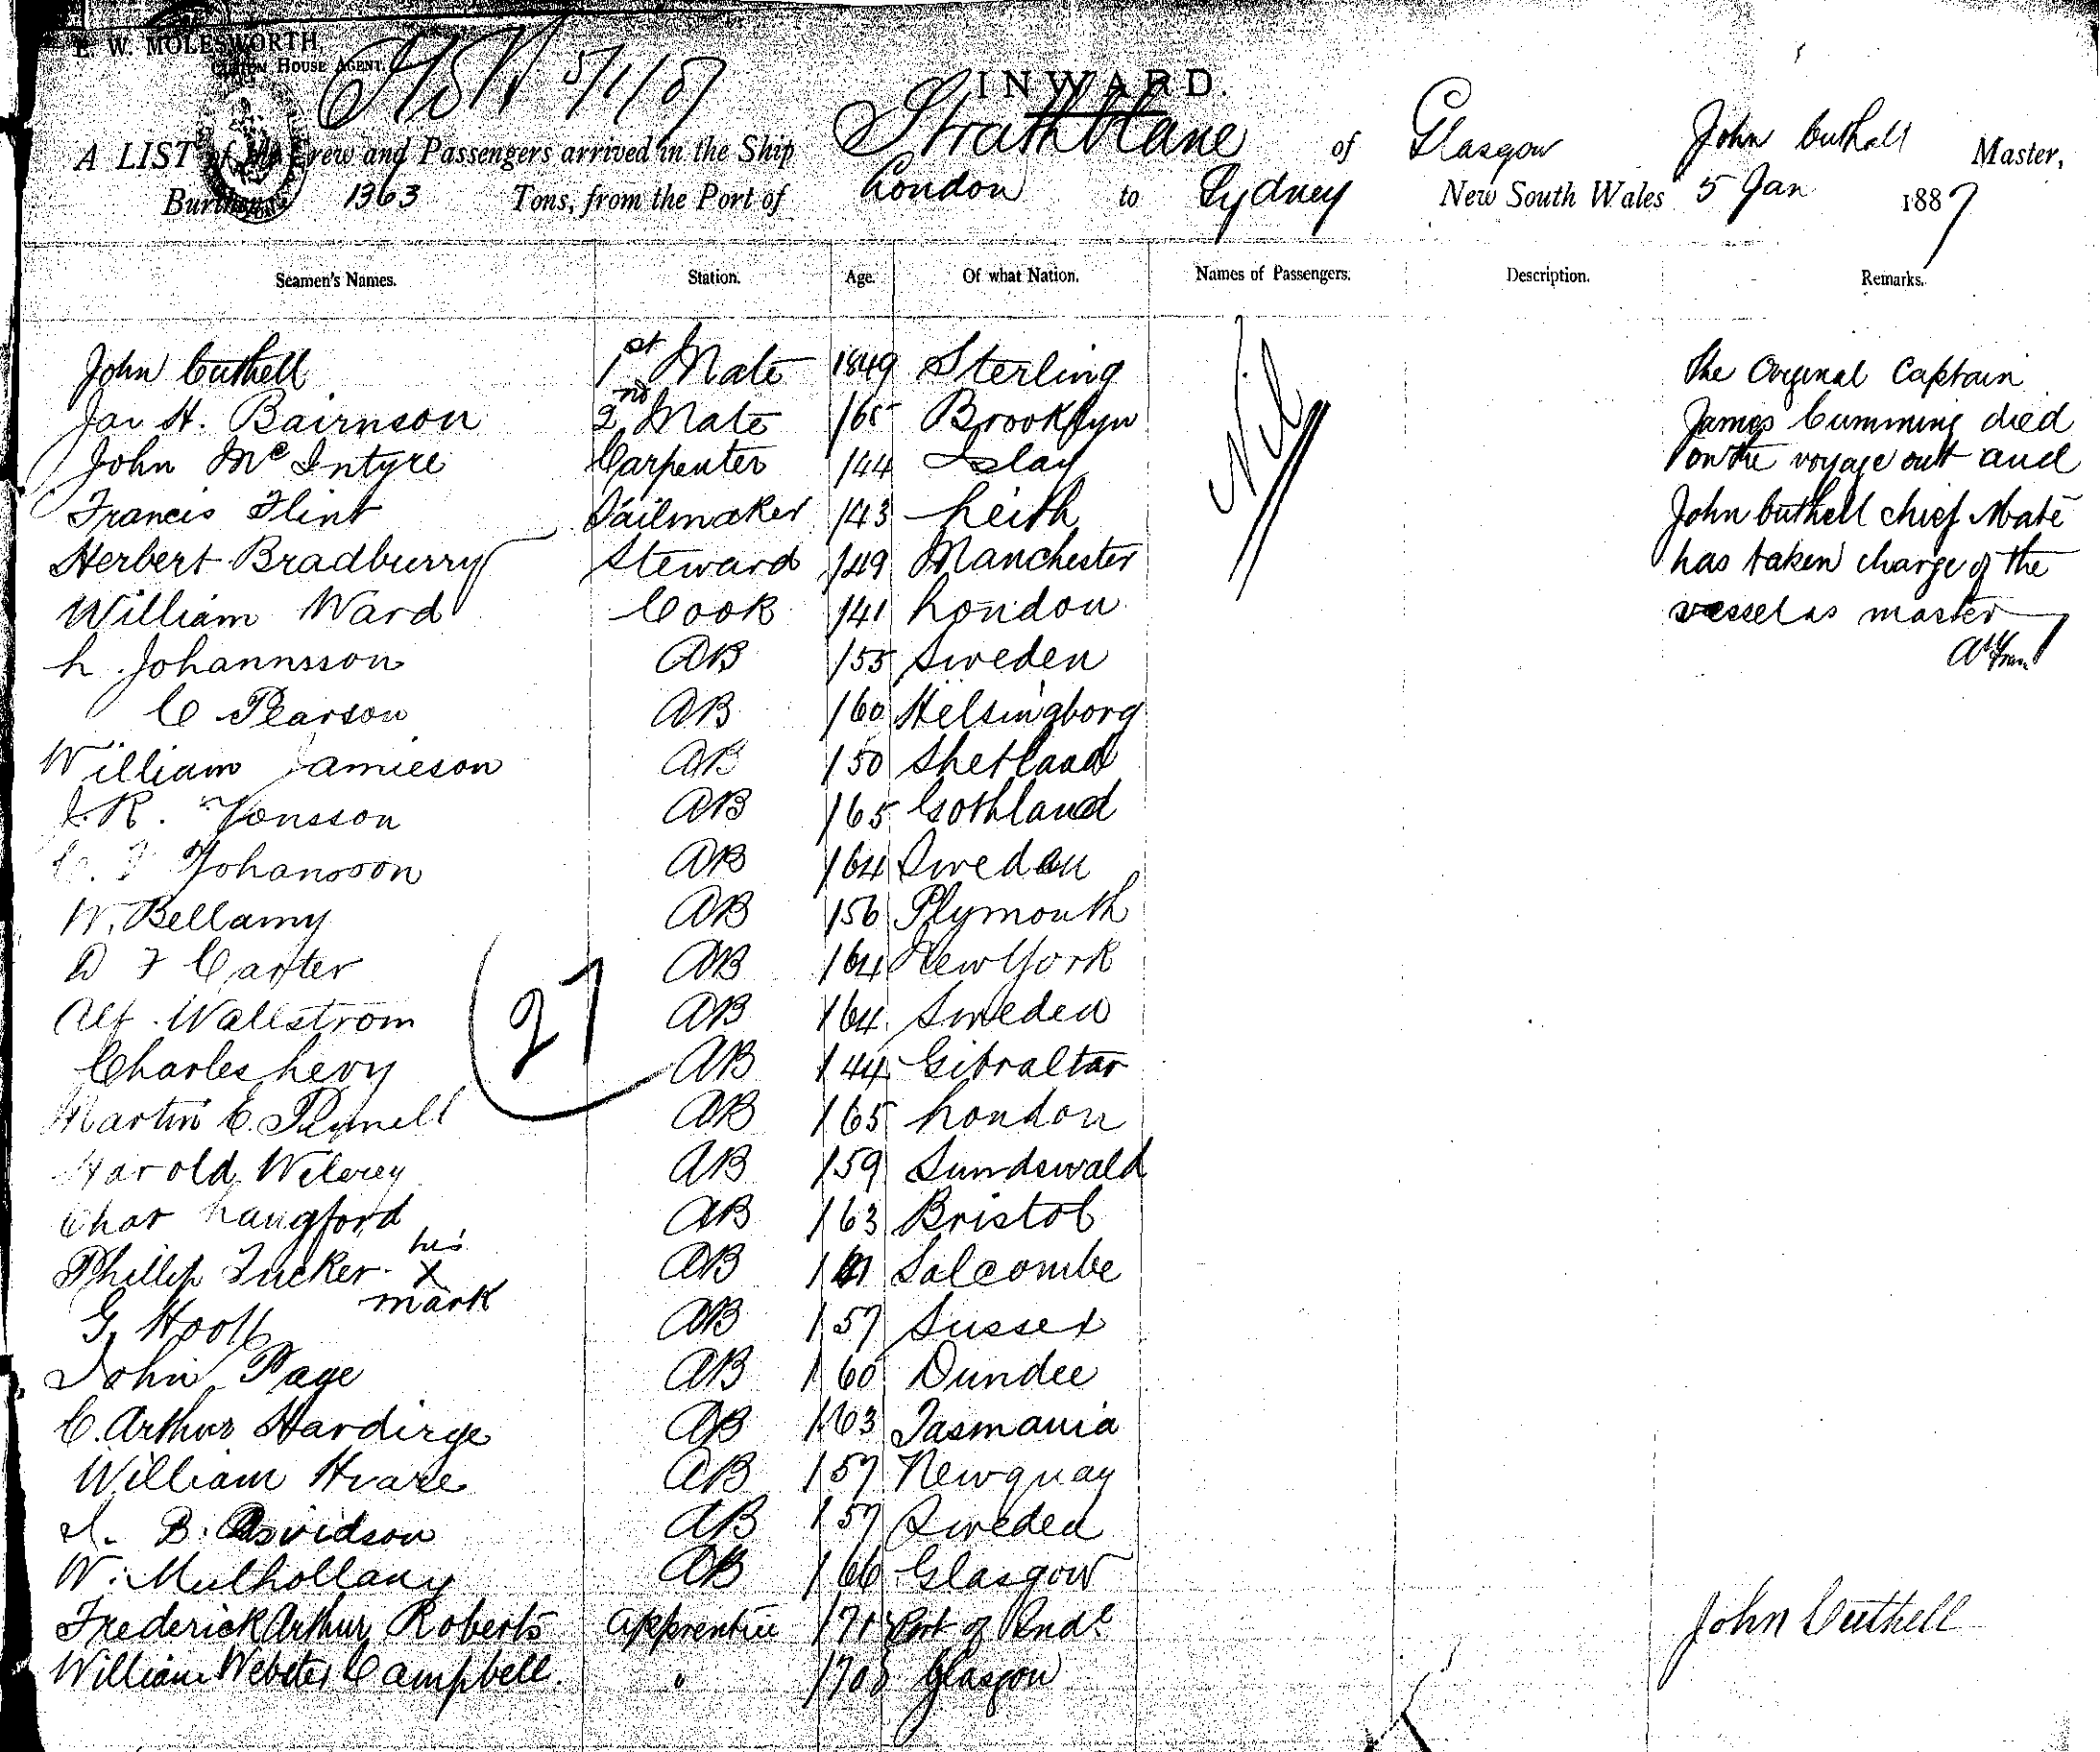 E. W. MOLESWORTH,
CUSTOM HOUSE AGENT.
5/1/87
INWARD.
A LIST of the Crew and Passengers arrived in the Ship Strathblane of Glasgow John Cuthell Master,
Burthen 1363 Tons, from the Port of London to Sydney New South Wales 5 Jan 1887
Seamen's Names. Station. Age. Of what Nation. Names of Passengers. Description. Remarks.
John Cuthell 1st Mate 1849 Sterling Nil The Original Captain
Jas H. Bairnson 2nd Mate /65 Brooklyn James Cumming died
John McIntyre Carpenter /44 Islay on the voyage out and
Francis Flint Sailmaker /43 Leith John Cuthell chief Mate
Herbert Bradburry Steward /49 Manchester has taken charge of the
William Ward Cook /41 London vessel as master
L. Johannsson AB /55 Sweden
C Pearson AB /60 Helsingborg
William Jamieson AB /50 Shetland
J. R. Jonsson AB /65 Gothland
C. F Johansson AB /64 Sweden
W. Bellamy AB /56 Plymouth
D F Carter AB /64 New York
Alf. Wallstrom AB /64 Sweden
27
Charles Levy AB /44 Gibraltar
Martin C. AB /65 London
Harold AB /59 Sundswald
Chas Langford AB /63 Bristol
Phillip Tucker his X mark AB / Salcombe
G. AB /57 Sussex
John Page AB /60 Dundee
C. Arthur Hardirge AB /63 Tasmania
William Hoare AB /57 Newquay
B. Davidson AB /57 Sweden
W. Mulhollany AB /66 Glasgow
Frederick Arthur Roberts apprentice /71 Port of Ind.
William Webster Campbell. " /70 Glasgow
John Cuthell